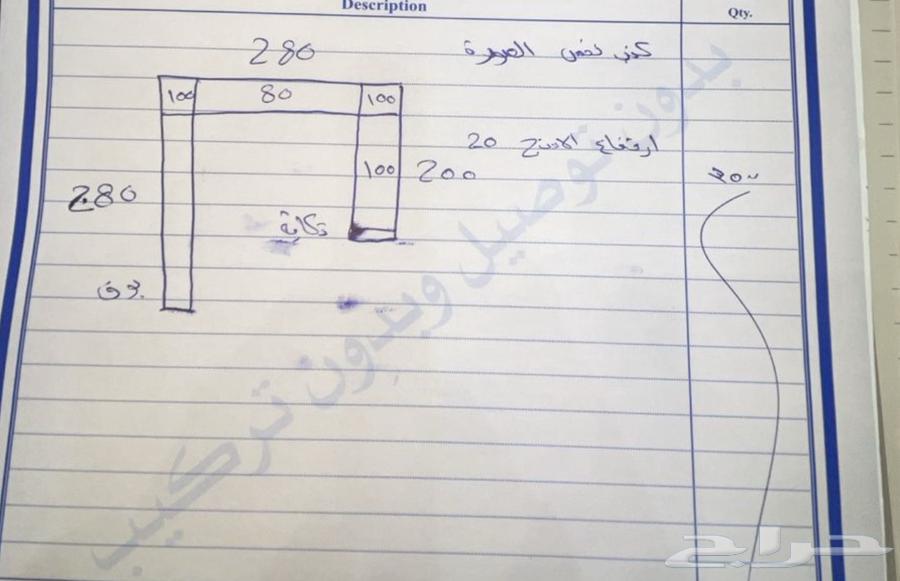 Description
Qty.
كنب نفس الصورة
280
100 80 100
ارتفاع الاسفنج 20
100 200
280
تكاية
بدون توصيل وبدون تركيب
حراج